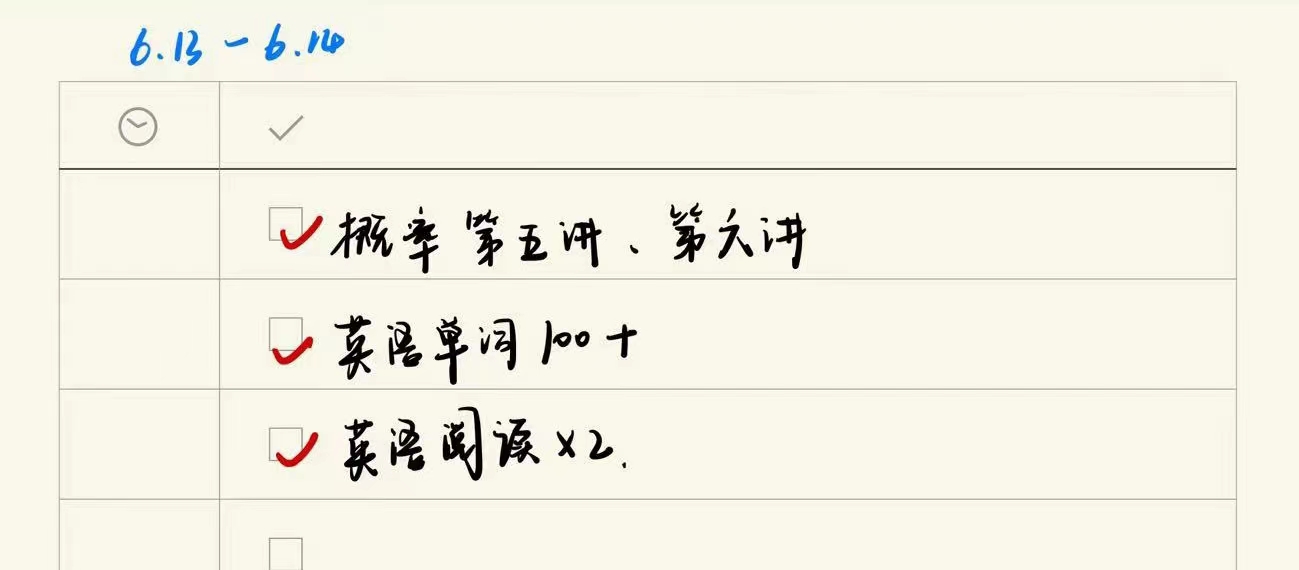 6.13-6.14
概率 第五讲、第六讲
英语单词100+
英语阅读×2.